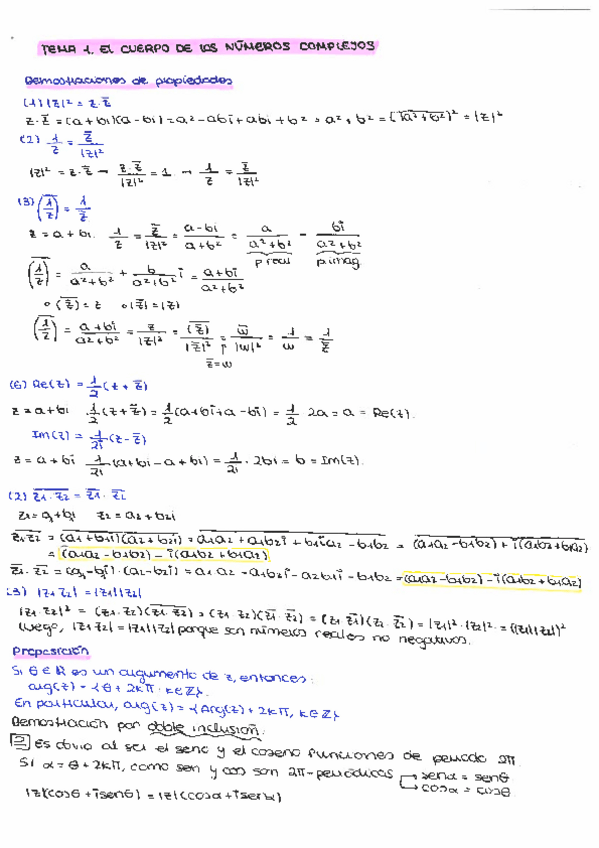 TEMA 1. EL CUERPO DE LOS NÚMEROS COMPLEJOS
Demostraciones de propiedades
(1) |z|² = z·z̄
z·z̄ = (a+bi)(a-bi) = a² - abi + abi + b² = a² + b² = (√(a²+b²))² = |z|²
(2) 1/z = z̄/|z|²
|z|² = z·z̄ → z·z̄/|z|² = 1 → 1/z = z̄/|z|²
(3) (1/z)‾ = 1/z̄
z = a+bi. 1/z = z̄/|z|² = (a-bi)/(a²+b²) = a/(a²+b²) - bi/(a²+b²)
p.real p.imag
(1/z)‾ = a/(a²+b²) + b/(a²+b²) i = (a+bi)/(a²+b²)
∘ (z̄)‾ = z ∘ |z̄| = |z|
(1/z)‾ = (a+bi)/(a²+b²) = z/|z|² = (z̄)‾/|z̄|² = w̄/|w|² = 1/w = 1/z̄
z̄=w
(6) Re(z) = 1/2 (z + z̄)
z = a+bi 1/2 (z+z̄) = 1/2 (a+bi+a-bi) = 1/2 · 2a = a = Re(z).
Im(z) = 1/2i (z-z̄)
z = a+bi 1/2i (a+bi-a+bi) = 1/2i · 2bi = b = Im(z).
(2) (z₁·z₂)‾ = z̄₁·z̄₂
z₁ = a₁+b₁i z₂ = a₂+b₂i
(z₁·z₂)‾ = ((a₁+b₁i)(a₂+b₂i))‾ = (a₁a₂ + a₁b₂i + b₁ia₂ - b₁b₂)‾ = ((a₁a₂-b₁b₂) + i(a₁b₂+b₁a₂))‾
= (a₁a₂-b₁b₂) - i(a₁b₂+b₁a₂)
z̄₁·z̄₂ = (a₁-b₁i)·(a₂-b₂i) = a₁a₂ - a₁b₂i - a₂b₁i - b₁b₂ = (a₁a₂-b₁b₂) - i(a₁b₂+b₁a₂)
(3) |z₁z₂| = |z₁||z₂|
|z₁·z₂|² = (z₁·z₂)(z₁·z₂)‾ = (z₁z₂)(z̄₁·z̄₂) = (z₁z̄₁)(z₂·z̄₂) = |z₁|²·|z₂|² = (|z₁||z₂|)²
Luego, |z₁z₂| = |z₁||z₂| porque son números reales no negativos.
Proposición
Si θ ∈ ℝ es un argumento de z, entonces:
arg(z) = {θ + 2kπ : k∈ℤ}.
En particular, arg(z) = {Arg(z) + 2kπ, k∈ℤ}
Demostración por doble inclusión.
⊇ Es obvio al ser el seno y el coseno funciones de periodo 2π.
Si α = θ + 2kπ, como sen y cos son 2π-periódicos → senα = senθ
→ cosα = cosθ
|z|(cosθ + isenθ) = |z|(cosα + isenα)